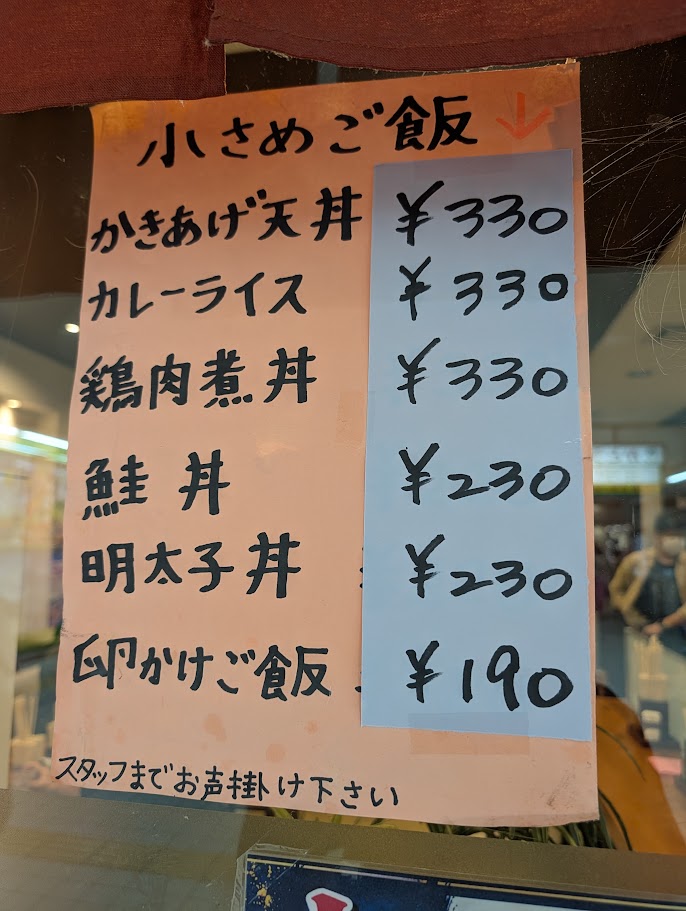 小さめご飯 ↓
かきあげ天丼 ¥330
カレーライス ¥330
鶏肉煮丼 ¥330
鮭丼 ¥230
明太子丼 ¥230
卵かけご飯 ¥190
スタッフまでお声掛け下さい